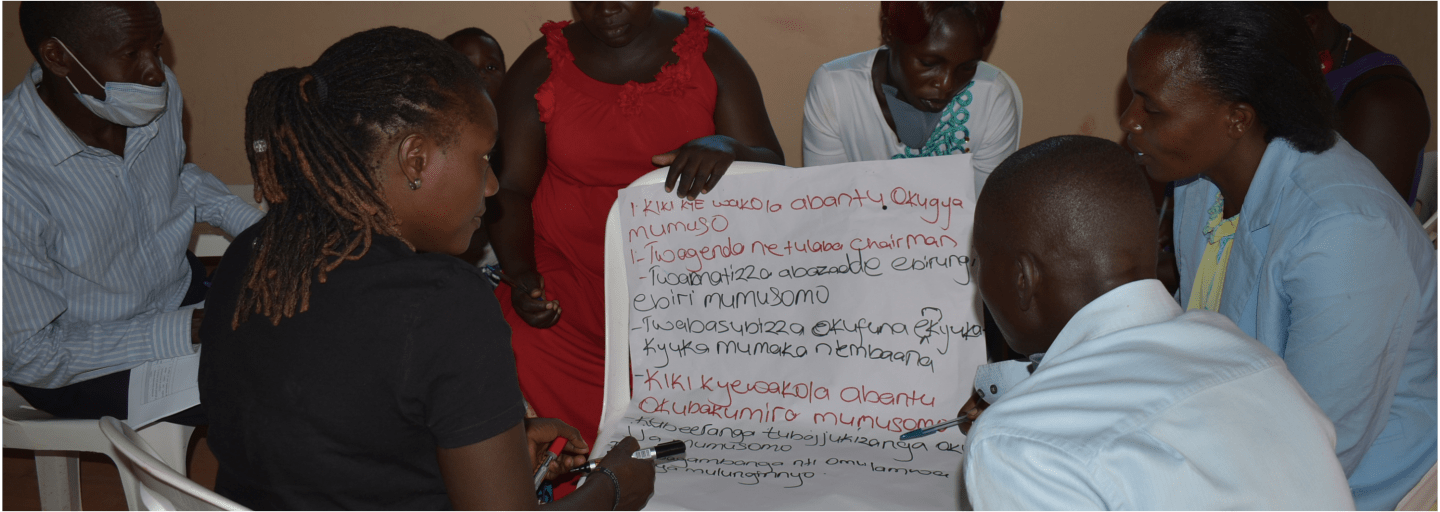 1. KIKI KYE wakola abantu Okugya
mumuso
1:- Twagenda netulaba chairman
- Twamatizza abazadde ebirungi
ebiri mumusomo
- Twabasubizza okufuna ekyuka
kyuka mumaka n'embaana
- KIKI Kyewakola abantu
Okubakumira mumusomo
tubajjukizanga
mumusomo
nti omulamwa